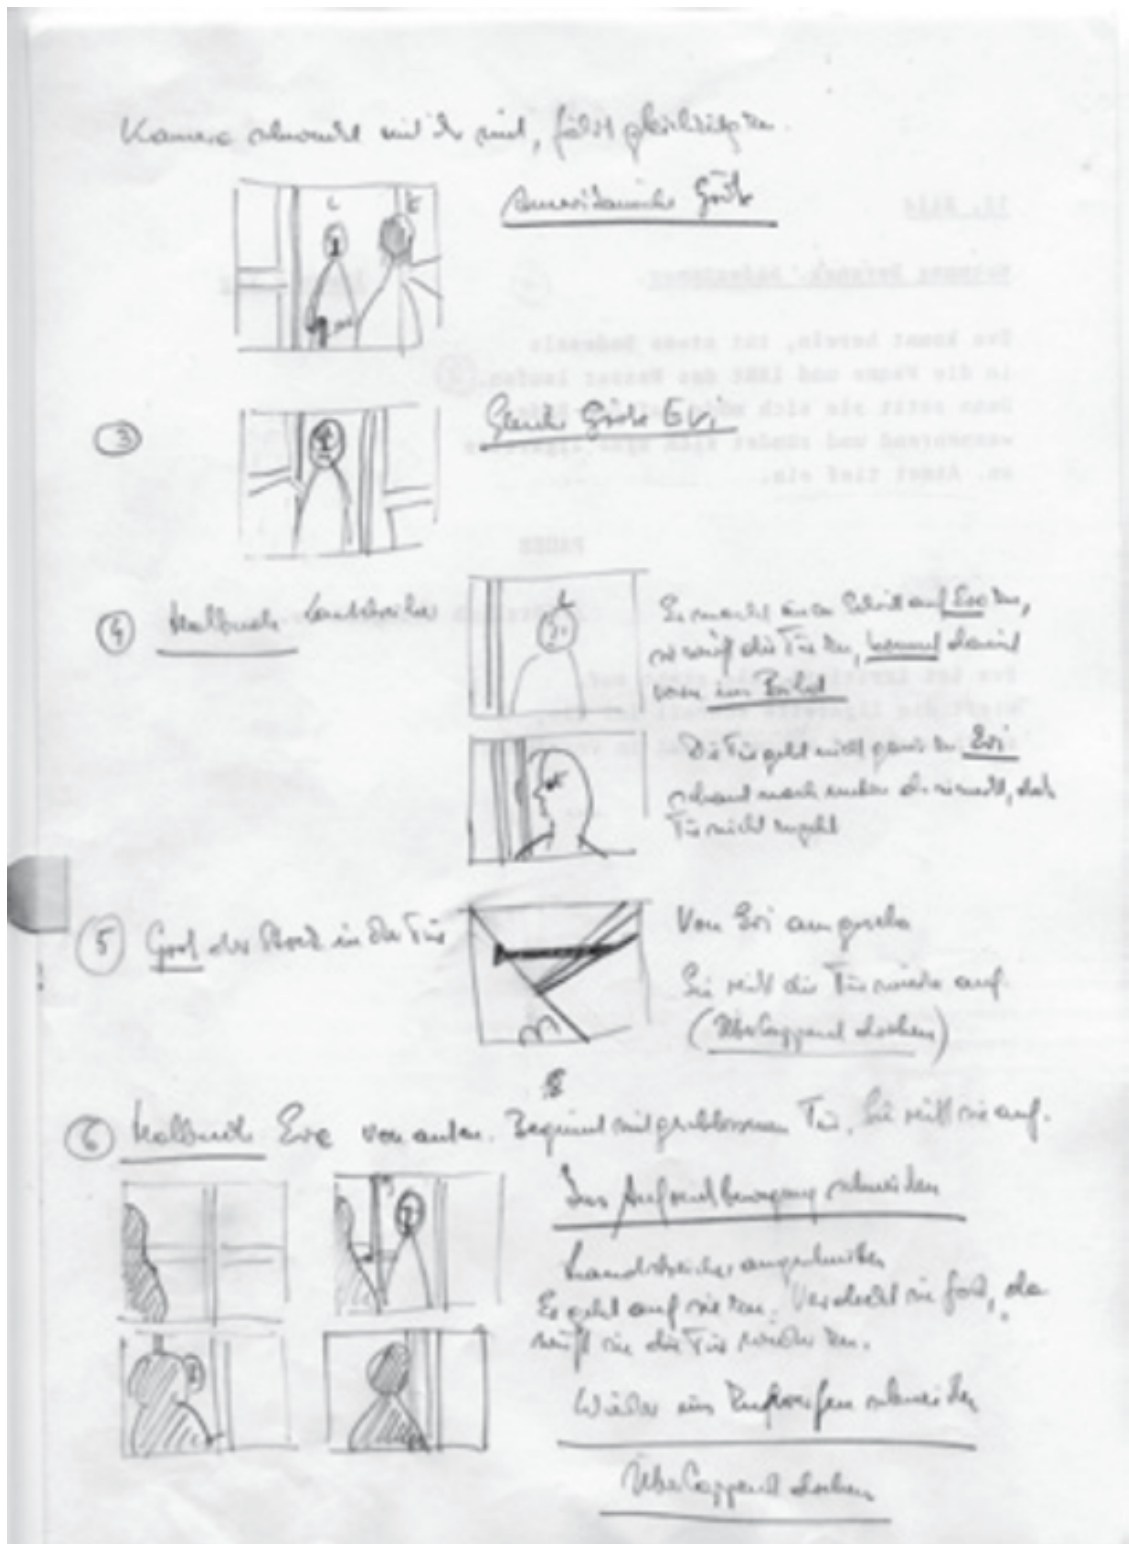 Kamera schwenkt mit ihr mit, fährt gleichzeitig zu.
L E
Amerikanische Größe
③
Gleiche Größe Evi
④ Halbnah Landstreicher
L
Er macht einen Schritt auf Eva zu,
sie wirft die Tür zu, kommt damit
vorn ins Bild
Die Tür geht nicht ganz zu Evi
schaut nach unten als sie merkt, daß
Tür nicht zugeht
⑤ Groß der Stock in der Tür
Von Evi aus gesehen
Sie reißt die Tür wieder auf.
(Überlappend drehen)
⑥ Halbnah Eva von außen. Beginnt mit geschlossener Tür. Sie reißt sie auf.
Ins Aufreißbewegung schneiden
Landstreicher angeschnitten
Er geht auf sie zu. Verdeckt sie fast, da
wirft sie die Tür wieder zu.
Wieder ins Zuwerfen schneiden
Überlappend drehen